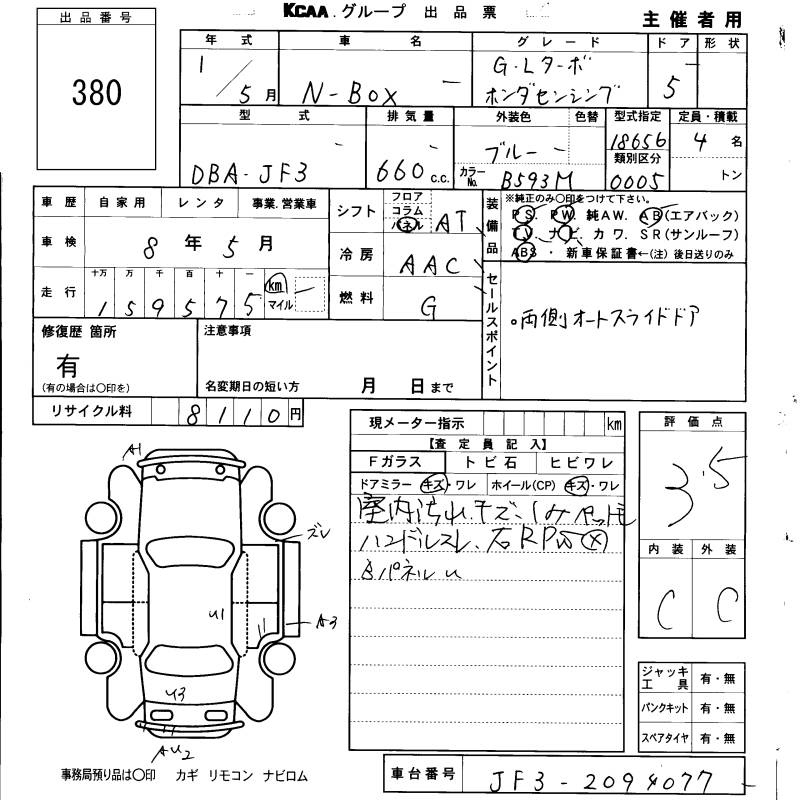 KCAA.グループ 出品票
主催者用
出品番号
380
年式 車名 グレード ドア 形状
1/5月 N-BOX ー G・Lターボ ホンダセンシング 5 ー
型式 排気量 外装色 色替 型式指定 定員・積載
DBA-JF3 660 c.c. ブルー ー 18656 4名
カラーNo. B593M 類別区分 0005 トン
車歴 自家用 レンタ 事業.営業車
車検 8年5月
走行 十万 万 千 百 十 一
159575 km マイル ー
シフト フロア コラム パネル AT
冷房 AAC
燃料 G
装備品
※純正のみ○印をつけて下さい。
PS. PW. 純AW. AB(エアバック)
TV. ナビ. カワ. SR(サンルーフ)
ABS・新車保証書←(注)後日送りのみ
セールスポイント
。両側オートスライドドア
修復歴 箇所
有
(有の場合は○印を)
注意事項
名変期日の短い方 月 日まで
リサイクル料 8110円
現メーター指示 km
【査定員記入】
Fガラス トビ石 ヒビワレ
ドアミラー キズ・ワレ ホイール(CP) キズ・ワレ
室内汚れ.キズ、
ハンドルスレ、右RP
パネルU
評価点
3.5
内装 外装
C C
A1
ズレ
U1
A3
U3
AU2
ジャッキ工具 有・無
パンクキット 有・無
スペアタイヤ 有・無
事務局預り品は○印 カギ リモコン ナビロム
車台番号 JF3-2094077